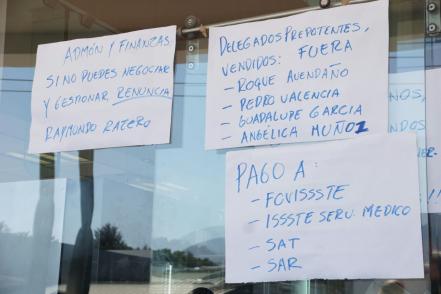 ADMÓN Y FINANZAS
SI NO PUEDES NEGOCIAR
Y GESTIONAR RENUNCIA
RAYMUNDO RATERO
DELEGADOS PREPOTENTES,
VENDIDOS: FUERA
- ROQUE AVENDAÑO
- PEDRO VALENCIA
- GUADALUPE GARCIA
- ANGÉLICA MUÑOZ
PAGO A:
- FOVISSSTE
- ISSSTE SERV. MEDICO
- SAT
- SAR